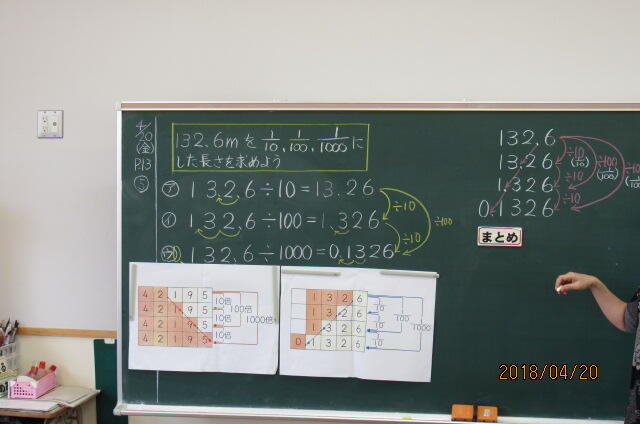 4/20
(金)
P.13
⑤
132.6mを 1/10, 1/100, 1/1000 に
した長さを求めよう
㋐ 132.6÷10=13.26
㋑ 132.6÷100=1.326
㋒ 132.6÷1000=0.1326
÷10
÷10
÷100
132.6
13.26
1.326
0.1326
÷10 (1/10)
÷10
÷10
÷100 (1/100)
まとめ
4 2 1 9 5
4 2 1 9 5
4 2 1 9 5
4 2 1 9 5
10倍
10倍
10倍
100倍
1000倍
1 3 2.6
1 3.2 6
1.3 2 6
0.1 3 2 6
1/10
1/10
1/10
1/100
1/1000
2018/04/20